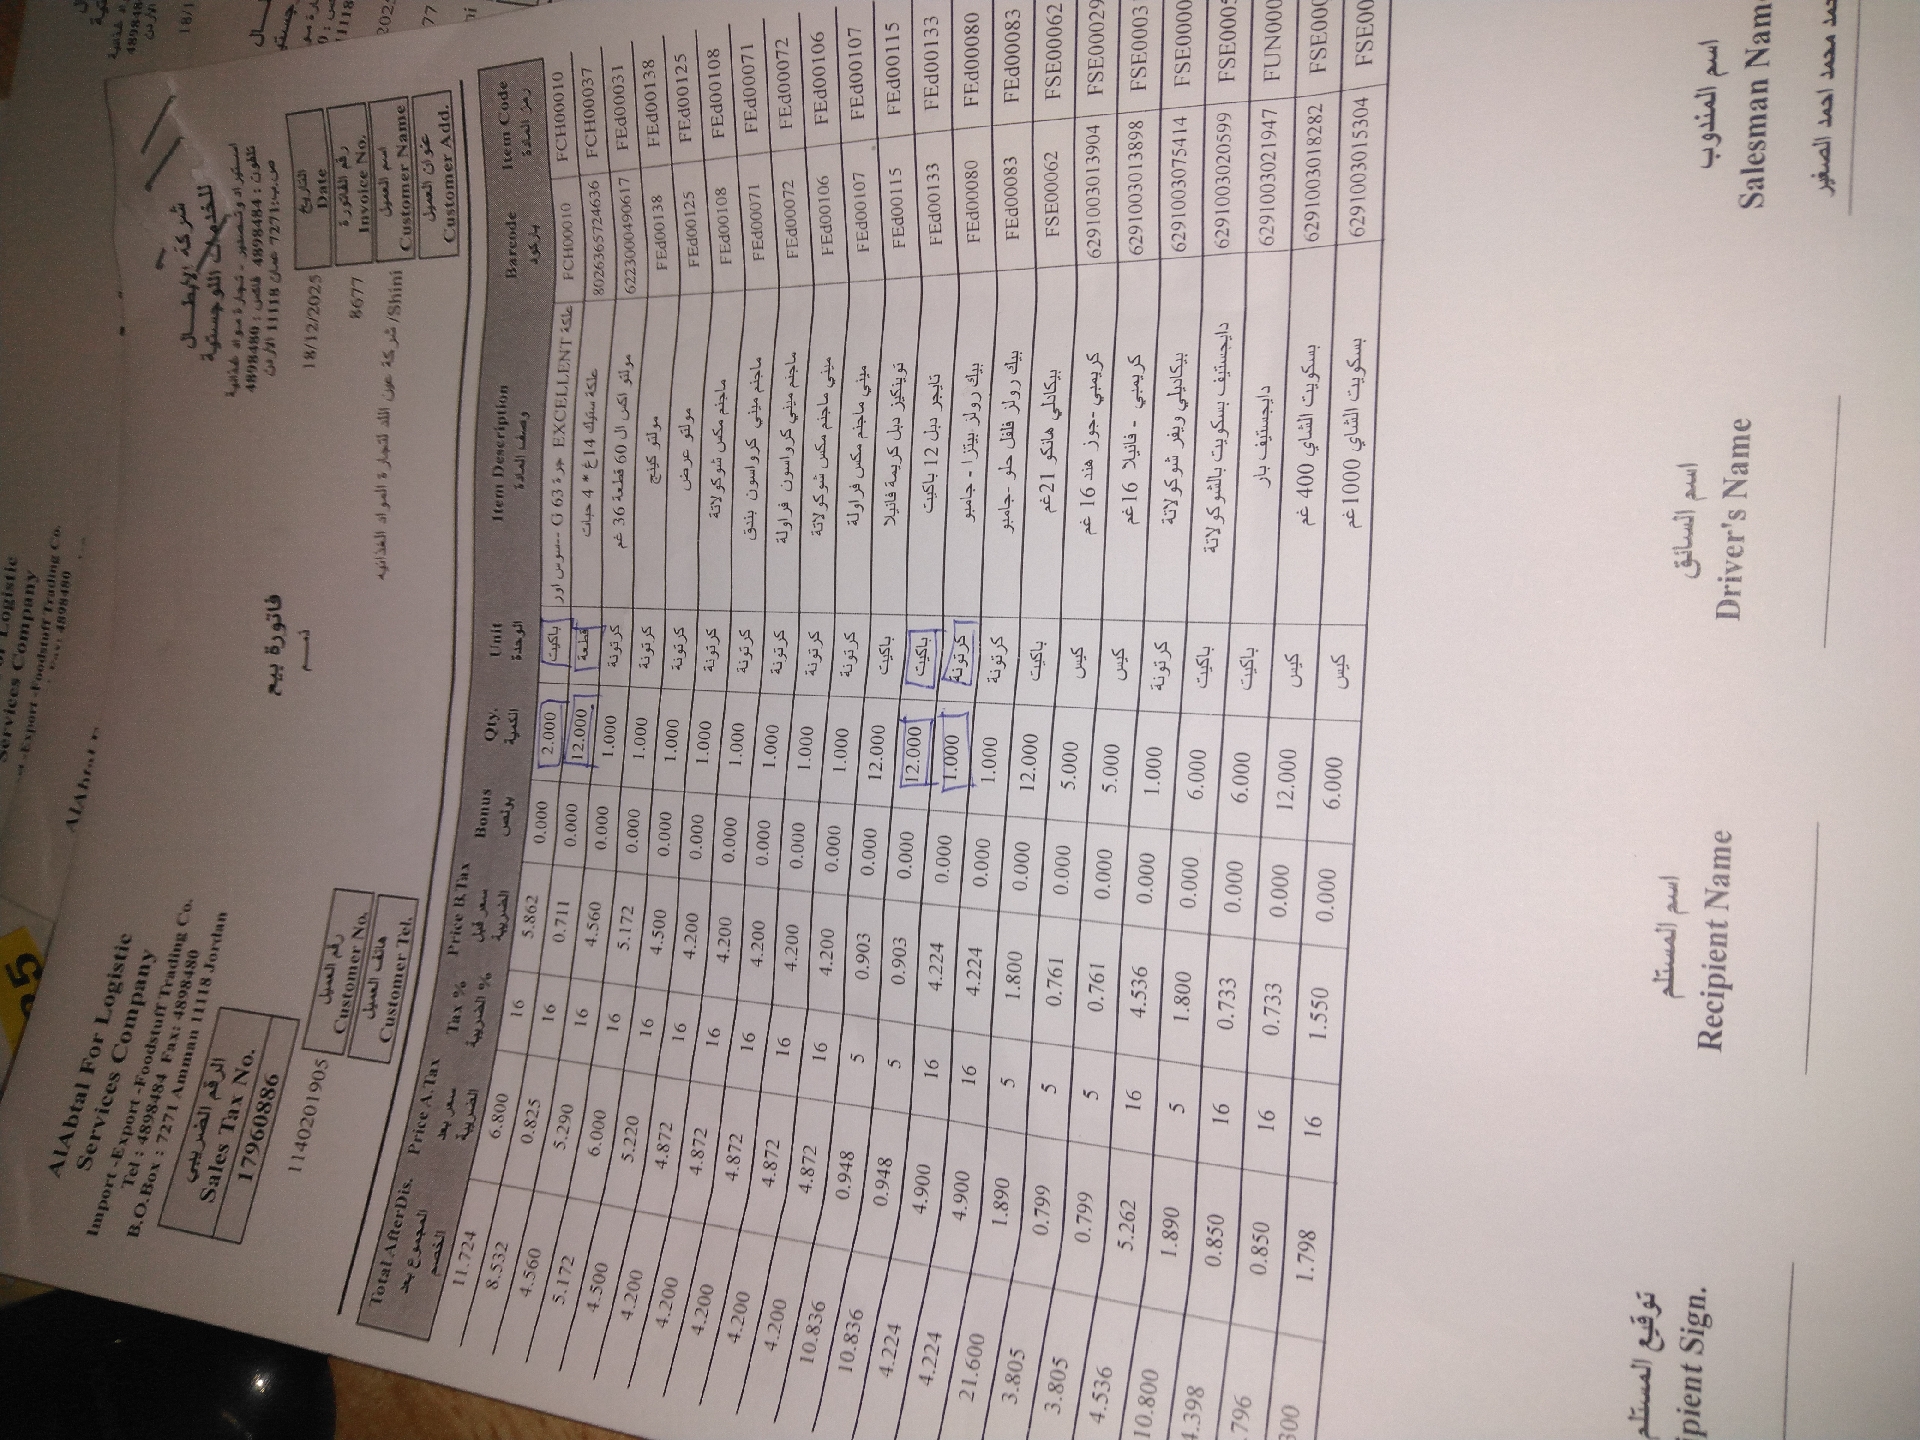 AlAbtal For Logistic
Services Company
Import -Export -Foodstuff Trading Co.
Tel : 4898484 Fax: 4898480
B.O.Box : 7271 Amman 11118 Jordan
شركة الابطـــال
للخدمات اللوجستية
استيراد وتصدير - تجارة مواد غذائية
تلفون : 4898484 فاكس : 4898480
ص.ب:7271 عمان 11118 الأردن
الرقم الضريبي
Sales Tax No.
17960886
فاتورة بيع
التاريخ
Date
18/12/2025
رقم الفاتورة
Invoice No.
8677
اسم العميل
Customer Name
شركة عين اللد لتجارة المواد الغذائيه /Shini
عنوان العميل
Customer Add.
11402201905
رقم العميل
Customer No.
هاتف العميل
Customer Tel.
Total AfterDis. Price A.Tax Tax % Price B.Tax Bonus Qty. Unit Item Description Barcode Item Code
المجموع بعد الخصم سعر بعد الضريبة الضريبة % سعر قبل الضريبة بونص الكمية الوحدة وصف المادة باركود رمز المادة
11.724 6.800 16 5.862 0.000 2.000 باكيت علكة EXCELLENT جرة 63 G --سوس اور FCH00010 FCH00010
8.532 0.825 16 0.711 0.000 12.000 قطعة علكة ستيك 14غ * 4 حبات 8026365724636 FCH00037
4.560 5.290 16 4.560 0.000 1.000 كرتونة مولتو اكس ال 60 قطعة 36 غم 6223000490617 FEd00031
5.172 6.000 16 5.172 0.000 1.000 كرتونة مولتو كينج FEd00138 FEd00138
4.500 5.220 16 4.500 0.000 1.000 كرتونة مولتو عرض FEd00125 FEd00125
4.200 4.872 16 4.200 0.000 1.000 كرتونة ماجنم مكس شوكولاتة FEd00108 FEd00108
4.200 4.872 16 4.200 0.000 1.000 كرتونة ماجنم ميني كرواسون بندق FEd00071 FEd00071
4.200 4.872 16 4.200 0.000 1.000 كرتونة ماجنم ميني كرواسون فراولة FEd00072 FEd00072
4.200 4.872 16 4.200 0.000 1.000 كرتونة ميني ماجنم مكس شوكولاتة FEd00106 FEd00106
4.200 4.872 16 4.200 0.000 1.000 كرتونة ميني ماجنم مكس فراولة FEd00107 FEd00107
10.836 0.948 5 0.903 0.000 12.000 باكيت توينكيز دبل كريمة فانيلا FEd00115 FEd00115
10.836 0.948 5 0.903 0.000 12.000 باكيت تايجر دبل 12 باكيت FEd00133 FEd00133
4.224 4.900 16 4.224 0.000 1.000 كرتونة بيك رولز بيتزا - جامبو FEd00080 FEd00080
4.224 4.900 16 4.224 0.000 1.000 كرتونة بيك رولز فلفل حلو -جامبو FEd00083 FEd00083
21.600 1.890 5 1.800 0.000 12.000 باكيت بيكادلي هانكو 21غم FSE00062 FSE00062
3.805 0.799 5 0.761 0.000 5.000 كيس كريمبي -جوز هند 16 غم 6291003013904 FSE00029
3.805 0.799 5 0.761 0.000 5.000 كيس كريمبي - فانيلا 16غم 6291003013898 FSE0003
4.536 5.262 16 4.536 0.000 1.000 كرتونة بيكاديلي ويفر شوكولاتة 6291003075414 FSE0000
10.800 1.890 5 1.800 0.000 6.000 باكيت دايجستيف بسكويت بالشوكولاتة 6291003020599 FSE0005
4.398 0.850 16 0.733 0.000 6.000 باكيت دايجستيف بار 6291003021947 FUN000
.796 0.850 16 0.733 0.000 12.000 كيس بسكويت الشاي 400 غم 6291003018282 FSE000
300 1.798 16 1.550 0.000 6.000 كيس بسكويت الشاي 1000غم 6291003015304 FSE00
توقيع المستلم
ipient Sign.
اسم المستلم
Recipient Name
اسم السائق
Driver's Name
اسم المندوب
Salesman Nam
مد محمد احمد الصغير